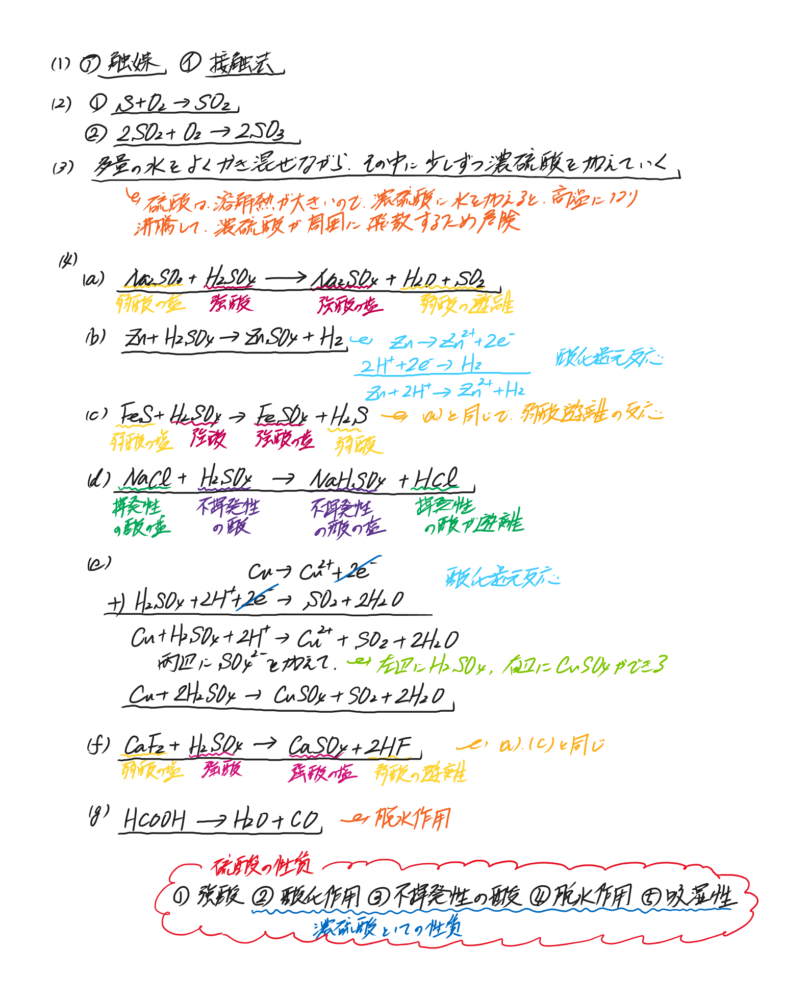 (1) ㋐ 触媒 ㋑ 接触法
(2) ① S+O₂→SO₂
② 2SO₂+O₂→2SO₃
(3) 多量の水をよくかき混ぜながら、その中に少しずつ濃硫酸を加えていく
硫酸は、溶解熱が大きいので、濃硫酸に水を加えると、高温になり
沸騰して、濃硫酸が周囲に飛散するため危険
(4)
(a) Na₂SO₃+H₂SO₄→Na₂SO₄+H₂O+SO₂
弱酸の塩 強酸 強酸の塩 弱酸の遊離
(b) Zn+H₂SO₄→ZnSO₄+H₂ Zn→Zn²⁺+2e⁻
2H⁺+2e⁻→H₂ 酸化還元反応
Zn+2H⁺→Zn²⁺+H₂
(c) FeS+H₂SO₄→FeSO₄+H₂S (a)と同じで、弱酸遊離の反応
弱酸の塩 強酸 強酸の塩 弱酸
(d) NaCl+H₂SO₄→NaHSO₄+HCl
揮発性 不揮発性 不揮発性 揮発性
の酸の塩 の酸 の酸の塩 の酸が遊離
(e) Cu→Cu²⁺+2e⁻ 酸化還元反応
+) H₂SO₄+2H⁺+2e⁻→SO₂+2H₂O
Cu+H₂SO₄+2H⁺→Cu²⁺+SO₂+2H₂O
両辺にSO₄²⁻を加えて、 左辺にH₂SO₄, 右辺にCuSO₄ができる
Cu+2H₂SO₄→CuSO₄+SO₂+2H₂O
(f) CaF₂+H₂SO₄→CaSO₄+2HF (a).(c)と同じ
弱酸の塩 強酸 強酸の塩 弱酸の遊離
(g) HCOOH→H₂O+CO 脱水作用
硫酸の性質
① 強酸 ② 酸化作用 ③ 不揮発性の酸 ④ 脱水作用 ⑤ 吸湿性
濃硫酸としての性質